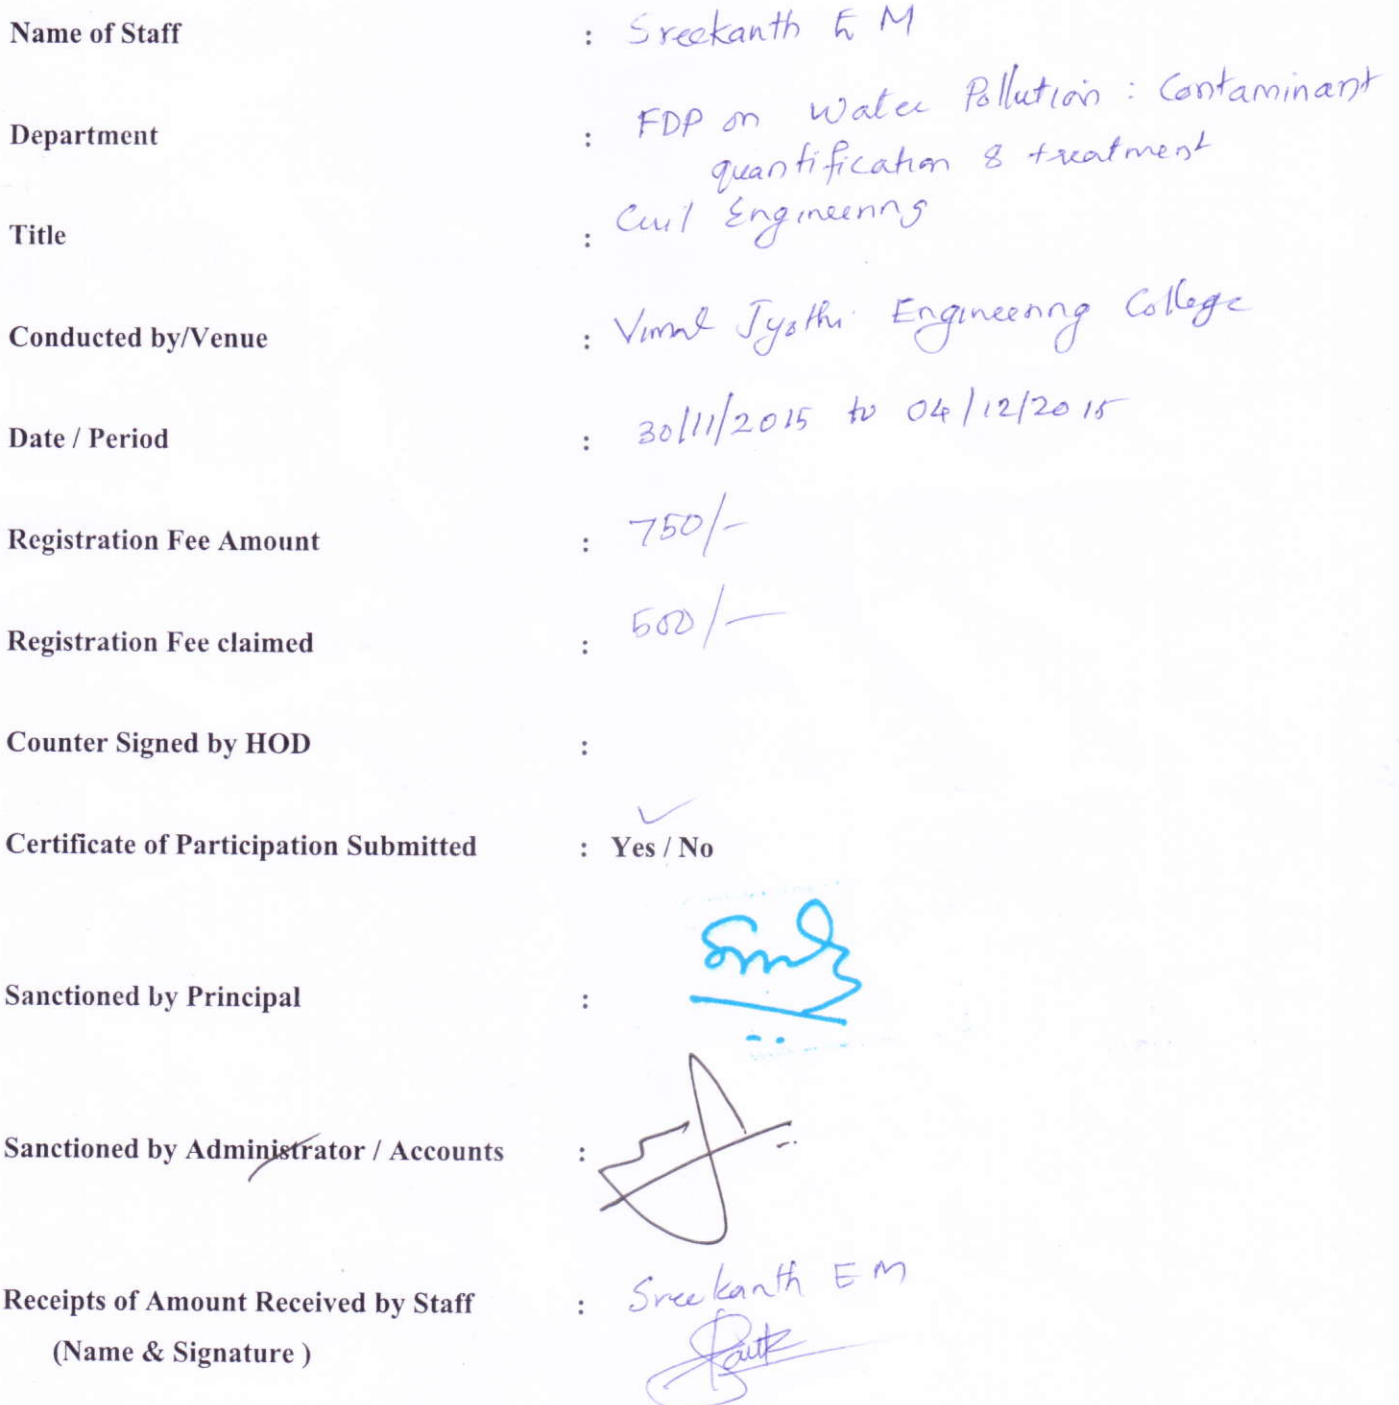 Name of Staff : Sreekanth E M
Department : FDP on Water Pollution : Contaminant
quantification & treatment
Title : Civil Engineering
Conducted by/Venue : Vimal Jyothi Engineering College
Date / Period : 30/11/2015 to 04/12/2015
Registration Fee Amount : 750/-
Registration Fee claimed : 500/-
Counter Signed by HOD :
Certificate of Participation Submitted : Yes / No
Sanctioned by Principal :
Sanctioned by Administrator / Accounts :
Receipts of Amount Received by Staff : Sreekanth E M
(Name & Signature )